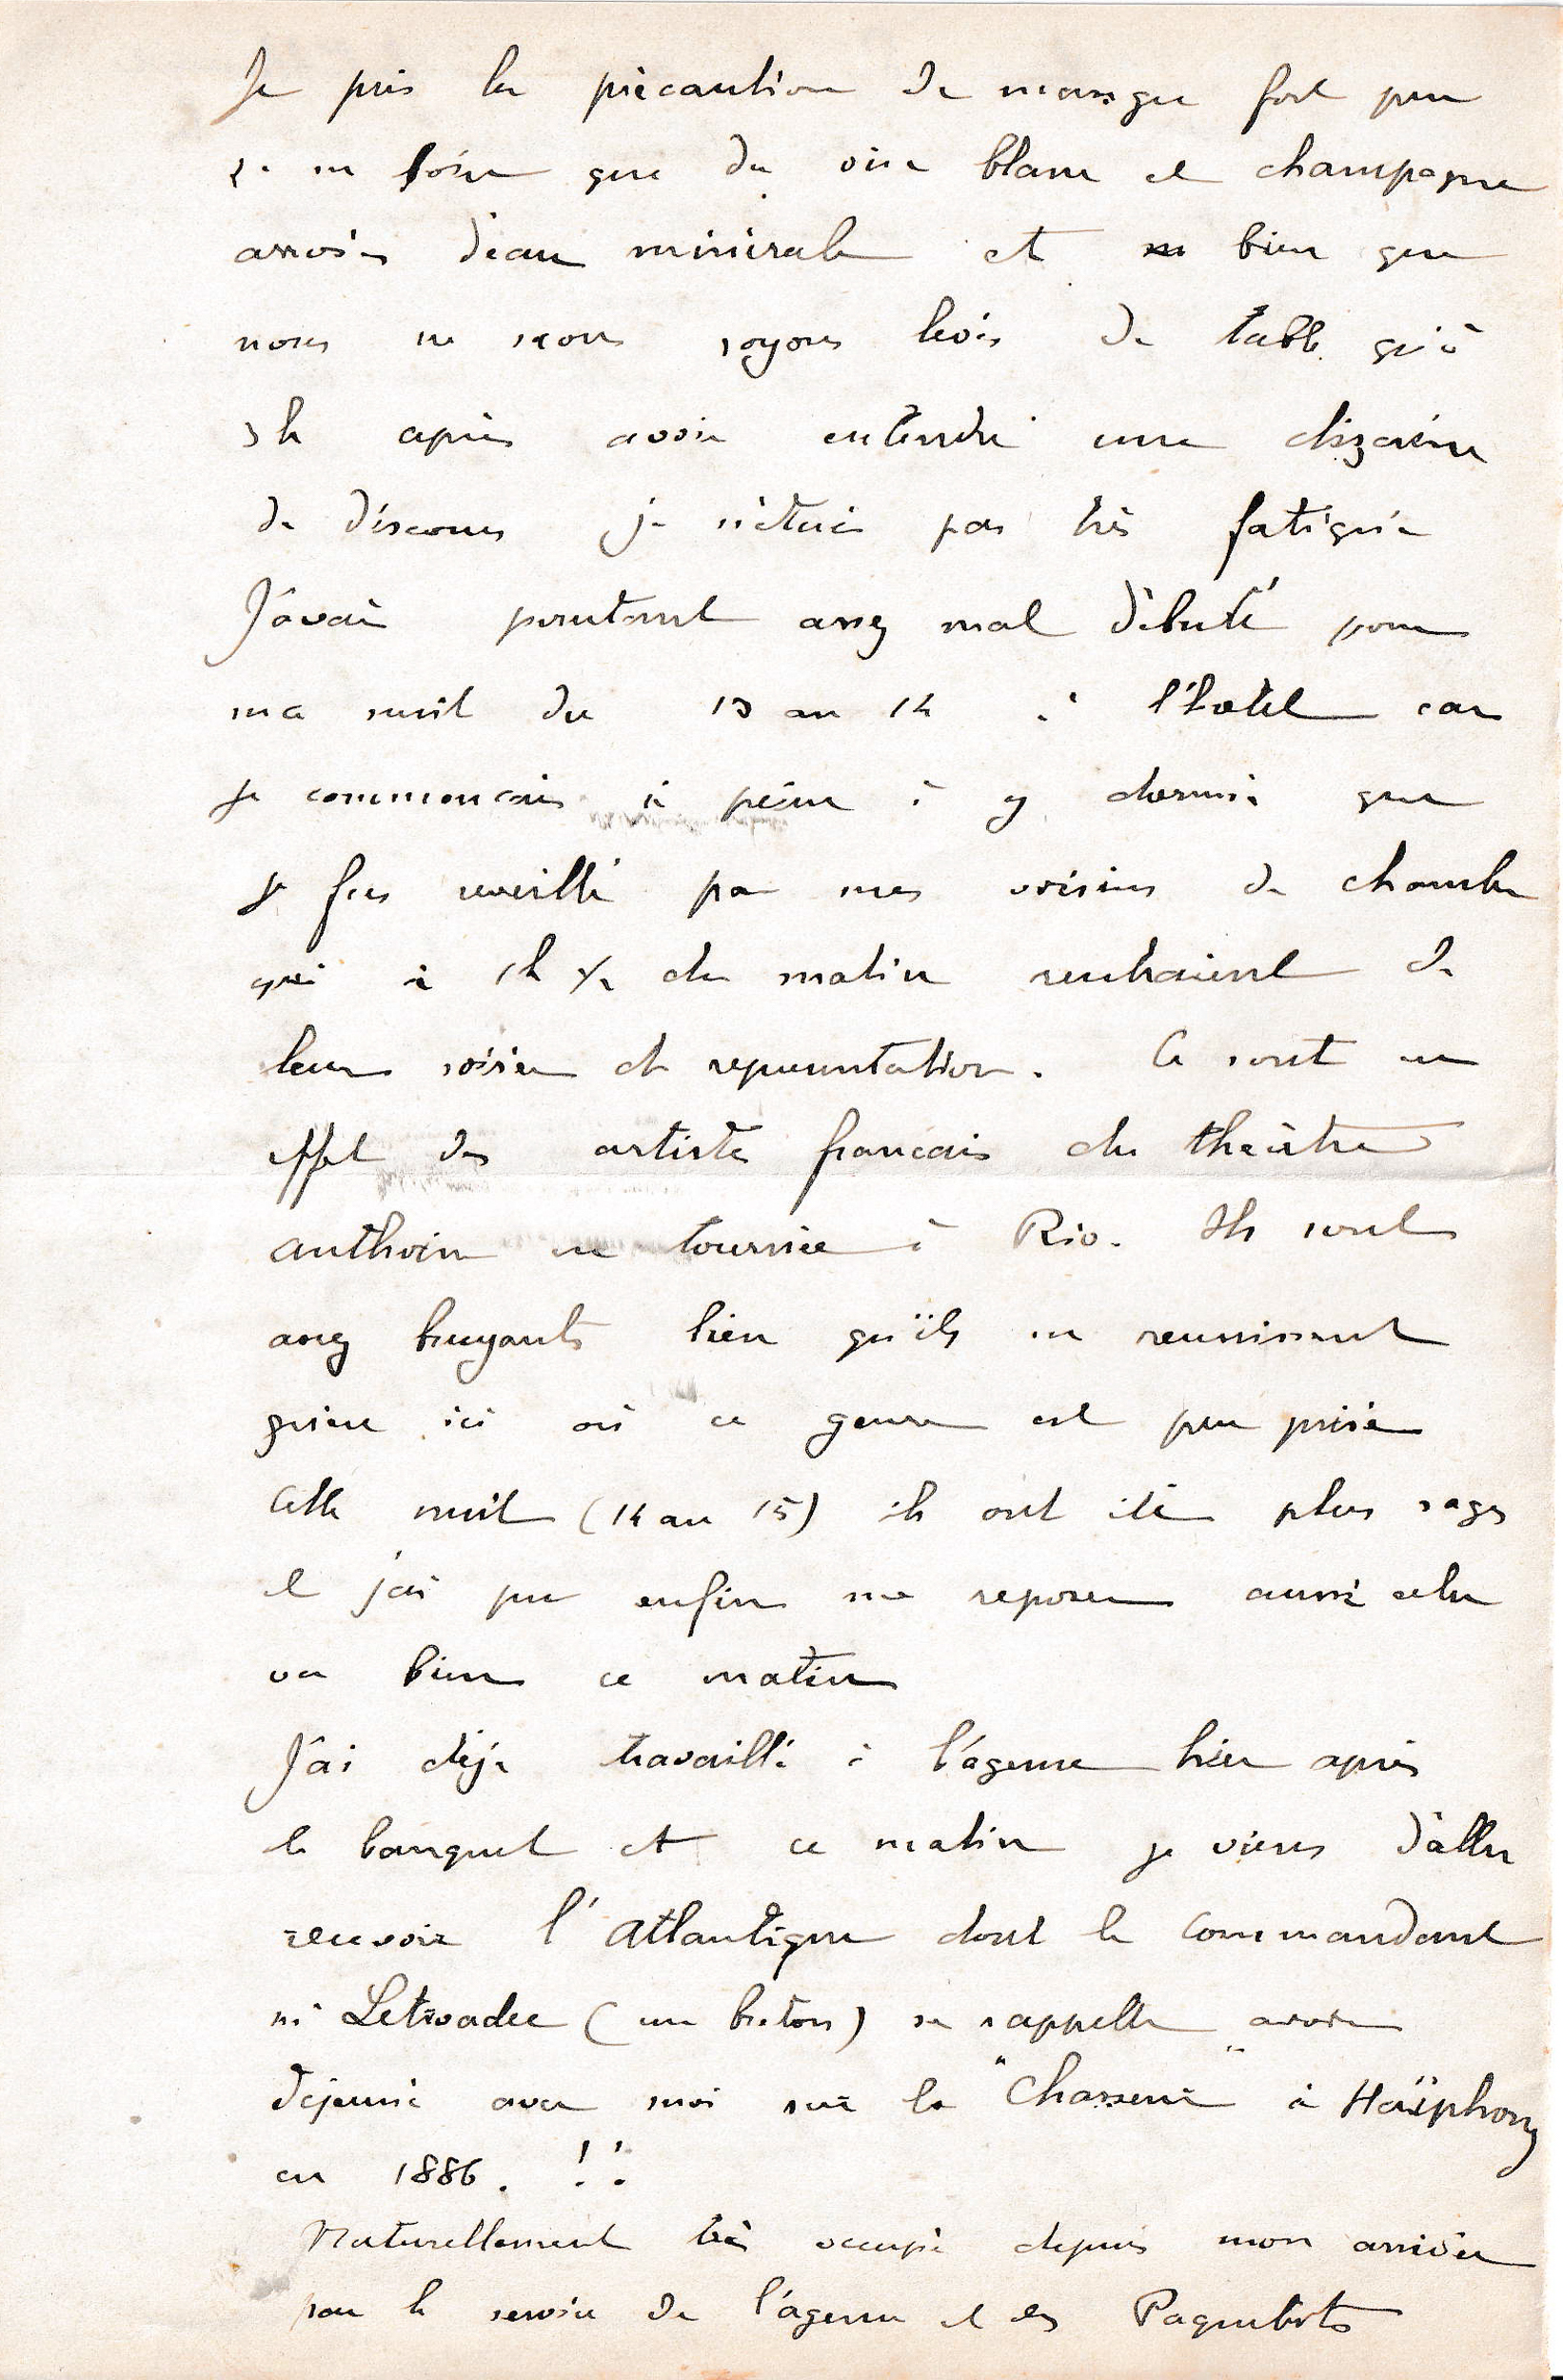 Je pris la précaution de manger fort peu
de ne boire que du vin blanc et champagne
arrosés d'eau minérale et bien que
nous ne nous soyons levés de table qu'à
3h après avoir entendu une dizaine
de discours je n'étais pas très fatigué
J'avais pourtant assez mal débuté pour
ma nuit du 13 au 14 à l'hotel car
je commençais à peine à y dormir que
je fus reveillé par mes voisins de chambre
qui à 1h ½ du matin rentraient de
leur soirée et representation. Ce sont en
effet des artistes francais du théâtre
Anthoine en tournée à Rio. Ils sont
assez bruyants bien qu'ils ne reunissent
guère ici où ce genre est peu prisé
Cette nuit (14 au 15) ils ont été plus sages
et j'ai pu enfin me reposer aussi cela
va bien ce matin
J'ai déjà travaillé à l'agence hier après
le banquet et ce matin je viens d'aller
recevoir l'Atlantique dont le Commandant
Mr (un breton) se rappelle avoir
déjeuné avec moi sur le "Chasseur" à Haïphong
en 1886. !!
Naturellement très occupé depuis mon arrivée
par le service de l'agence et les Paquebots